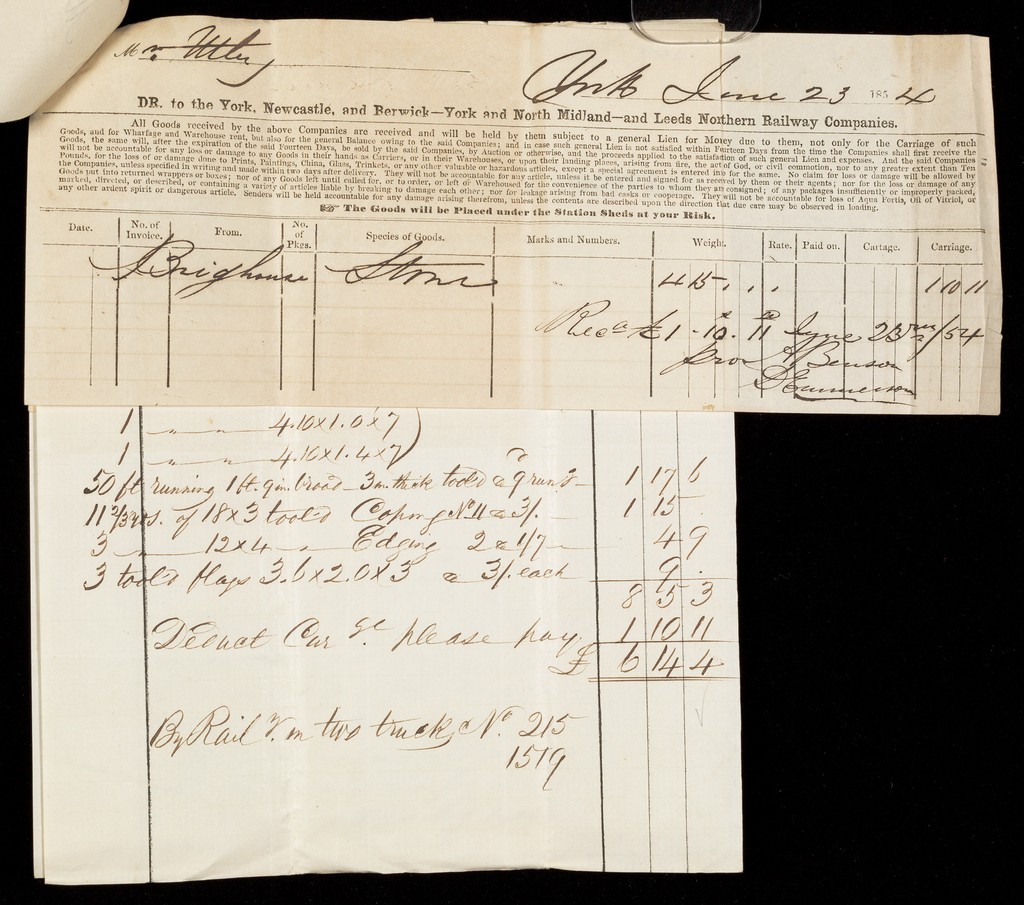 Mr. Utley
York June 23 1854
DR. to the York, Newcastle, and Berwick—York and North Midland—and Leeds Northern Railway Companies.
All Goods received by the above Companies are received and will be held by them subject to a general Lien for Money due to them, not only for the Carriage of such
Goods, and for Wharfage and Warehouse rent, but also for the general Balance owing to the said Companies; and in case such general Lien is not satisfied within Fourteen Days from the time the Companies shall first receive the
Goods, the same will, after the expiration of the said Fourteen Days, be sold by the said Companies, by Auction or otherwise, and the proceeds applied to the satisfaction of such general Lien and expenses. And the said Companies
will not be accountable for any loss or damage to any Goods in their hands as Carriers, or in their Warehouses, or upon their landing places, arising from fire, the act of God, or civil commotion, nor to any greater extent than Ten
Pounds, for the loss of or damage done to Prints, Paintings, China, Glass, Trinkets, or any other valuable or hazardous articles, except a special agreement is entered into for the same. No claim for loss or damage will be allowed by
the Companies, unless specified in writing and made within two days after delivery. They will not be accountable for any article, unless it be entered and signed for as received by them or their agents; nor for the loss or damage of any
Goods put into returned wrappers or boxes; nor of any Goods left until called for, or to order, or left or Warehoused for the convenience of the parties to whom they are consigned; of any packages insufficiently or improperly packed,
marked, directed, or described, or containing a variety of articles liable by breaking to damage each other; nor for leakage arising from bad casks or cooperage. They will not be accountable for loss of Aqua Fortis, Oil of Vitriol, or
any other ardent spirit or dangerous article. Senders will be held accountable for any damage arising therefrom, unless the contents are described upon the direction that due care may be observed in loading.
☞ The Goods will be Placed under the Station Sheds at your Risk.
Date. No. of Invoice. From. No. of Pkgs. Species of Goods. Marks and Numbers. Weight. Rate. Paid on. Cartage. Carriage.
Brighouse Stone 4 15 , , , 1 10 11
Recd £1 - 10. 11 June 23 /54
pro A Benson
1 " " 4.10 x 1.0 x 7
1 " " 4.10 x 1.4 x 7
50 ft running 1 ft. 9 in. broad 3 in. thick tool'd a 9 run'g 1 17 6
11 2/3 yds. of 18 x 3 tool'd Coping No 11 a 3/. 1 15 .
3 " 12 x 4 " Edging 2 a 1/7 4 9
3 tool'd flags 3.6 x 2.0 x 3 a 3/. each 9 .
8 5 3
Deduct Carge. please pay 1 10 11
£ 6 14 4
By Rail in two trucks No. 215
1519